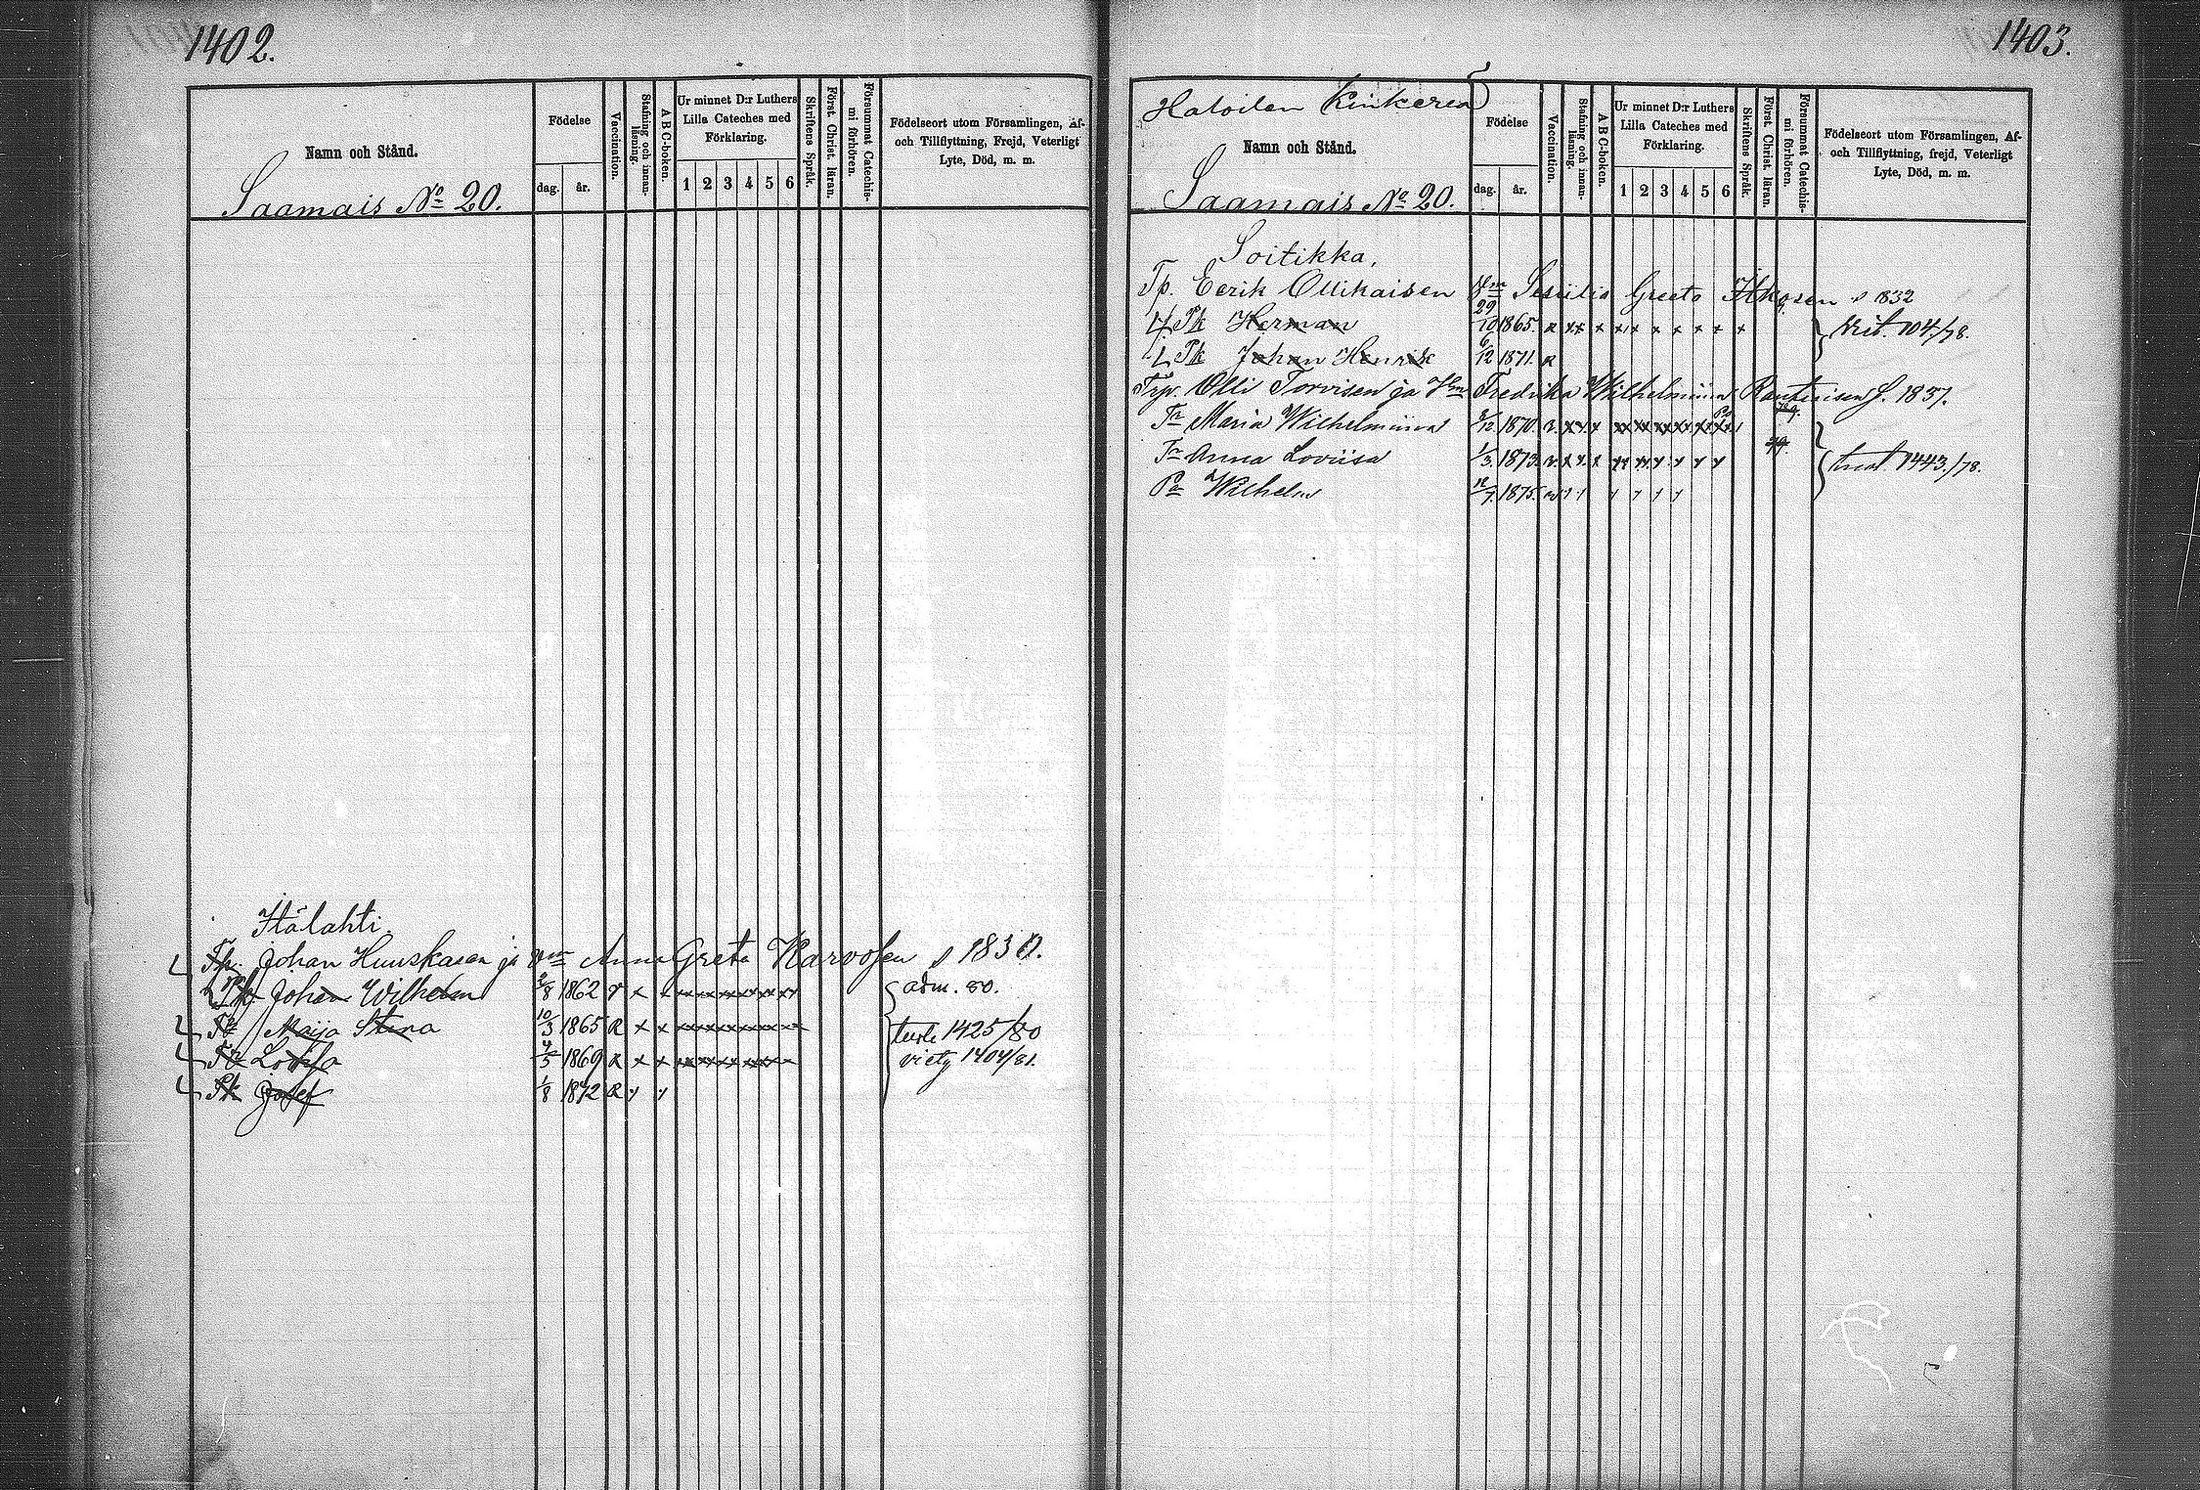 1402.
Namn och Stånd.
Saamais No 20.
Födelse
dag.
år.
Vaccination.
Stafning och innan-
läsning.
ABC-boken.
Ur minnet D:r Luthers
Lilla Cateches med
Förklaring.
1 2 3 4 5 6
Skriftens Språk.
Först. Christ. läran.
Försummat Catechis-
mi förhören.
Födelseort utom Församlingen, Af-
och Tillflyttning, Frejd, Veterligt
Lyte, Död, m. m.
Itälahti.
Tp. Johan Huuskasen ja Vm Anna Greta Karvosen s 1830.
Pk Johan Wilhelm 2/8 1862 adm. 80.
Tr Maija Stina 10/3 1865 R 1425/80
Tr Lovisa 4/5 1869 R 1404/81.
Pk Josef 1/8 1872 R
1403.
Hatoilan Kinkeren
Namn och Stånd.
Saamais No 20.
Födelse
dag.
år.
Vaccination.
Stafning och innan-
läsning.
ABC-boken.
Ur minnet D:r Luthers
Lilla Cateches med
Förklaring.
1 2 3 4 5 6
Skriftens Språk.
Först. Christ. läran.
Försummat Catechis-
mi förhören.
Födelseort utom Församlingen, Af-
och Tillflyttning, frejd, Veterligt
Lyte, Död, m. m.
Soitikka.
Tp. Eerik Ollikaisen Vm Greeta Itkosen s 1832
Pk Herman 29/10 1865. 104/78.
Pk Johan Henrik 6/12 1871.
Olli Torvisen ja Vm Fredrika Wilhelmiina 1837.
Tr Maria Wilhelmiina 1870.
Tr Anna Loviisa 1/3 1873. 1443/78.
Wilhelm 1875.